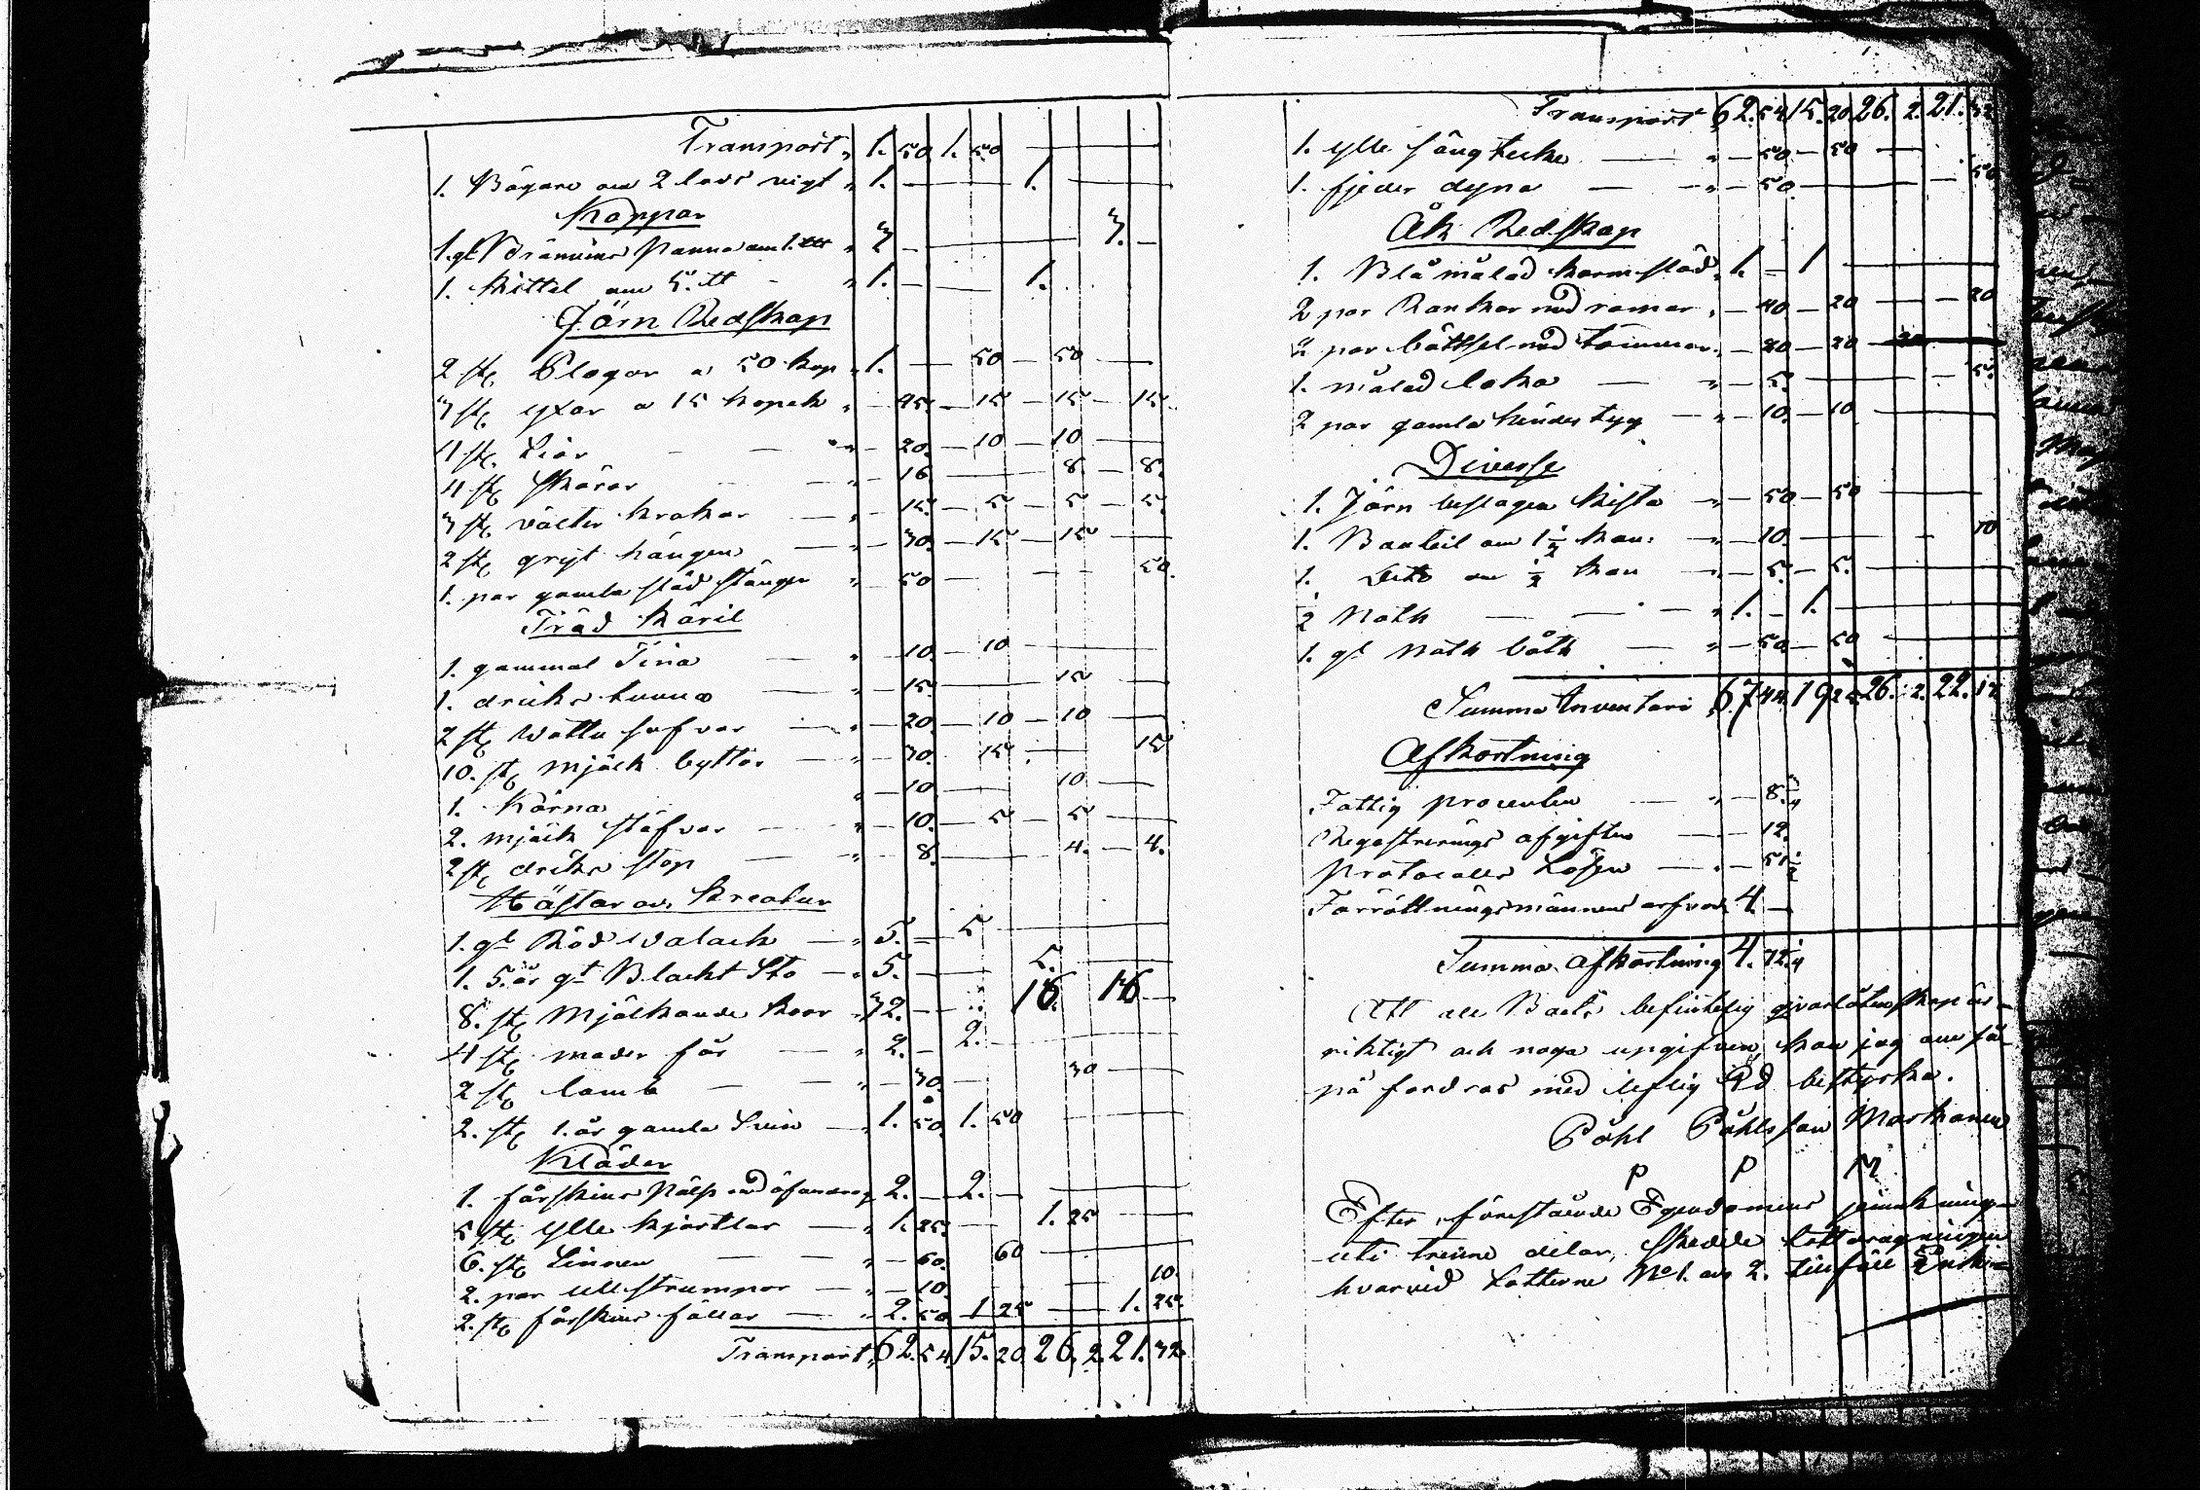 Transport " 1. 50 1. 50
1. Bägare om 2 lods vigt " 1. — 1.
Koppar
1. gl. Bränvins Panna om 1. " 3 — 3. —
1. Kittel om 5. ℔ - " 1. — 1.
Järn Redskap
2 st. Plogar a 50 kop " 1. — 50 — 50 —
3 st. yxar a 15 kopek " — 45. — 15 — 15 — 15
4 st. Liar - - " — 20. — 10 — 10 —
4 st. Skäror - - " — 16 — 8. — 8.
3 st. välter krokar — " — 15. — 5 — 5 — 5
2 st. gryt hängen — " — 30. — 15 — 15 —
1. par gamla städ stänger " — 50 — 50.
Träd Käril
1. gammal Tina — " — 10. — 10 —
1. dricks tunna — " — 15. — 15 —
2 st. Wattu säfvar — " — 20. — 10 — 10 —
10. st. mjölk byttor — " — 30. 15. — 15
1. Kärna " — 10 — 10 —
2. mjölk stäfvor — " — 10. — 5 — 5 —
2 st. dricks stop — " — 8. — 4. — 4.
Hästar och Kreatur
1. gl. Röd Walack — " 5. — 5
1. 5. år gl. Blackt Sto — " 5. — 5.
8. st. Mjölkande Koor " 32. — 16. 16 —
4 st. moder får — " 2. — 2. —
2 st. lamb — — " — 30. — 30 —
2. st. 1. år gamla Svin — " 1. 50. 1. 50
Kläder
1. fårskins Päls med öfverdrag 2. — 2. —
5 st. ylle kjortlar — " 1. 25. — 1. 25 —
6. st. Linnen — — " — 60. 60 —
2. par ullstrumpor — " — 10. — 10.
2. st. fårskins fällar — " 2. 50 1 25 — 1. 25.
Transport " 62. 54. 15. 20 26. 2. 21. 32
Transport 62. 54 15. 20 26. 2. 21. 32
1. ylle sängtäcke — " — 50 — 50 —
1. fjeder dyna — " — 50. — 50
Åk Redskap
1. Blå målad karm släd " 1. — 1 —
2 par Rankor med ramar " — 40 — 20 — 20
2 par bättsel med tömmar " — 20 — 20
1. målad loka — " — 5. — 5.
2 par gamla tindertyg — " — 10. — 10 —
Diverse
1. Järn beslagen kista — " — 50 — 50 —
1. Bouteil om 1½ kan: — " — 10. — 10
1. Dito om ½ kan — " — 5. — 5. —
½ Noth — — " 1. — 1. —
1. gl. Noth båth — " — 50. — 50 —
Summa Inventarii 67 44. 19 25 26. 2. 22. 17
Afkortning
Fattig procenten — " — 8. ¾
Registrerings afgiften — — 12.
Protocolls Lösen — " — 51½
Förrättningsmännens arfvod 4. —
Summa Afkortning 4. 72¼
Att all Boets befintelig qvarlåtenskap är
riktigt och noga upgifven, kan jag om så
på fordras med liflig Ed bestyrka.
Påhl Påhlsson Markanen
P P M
Efter förestående Egendomens
uti trenne delar, skedde lottdragningen
hvarvid Lotterne No 1. och 2. tillföll Enkan